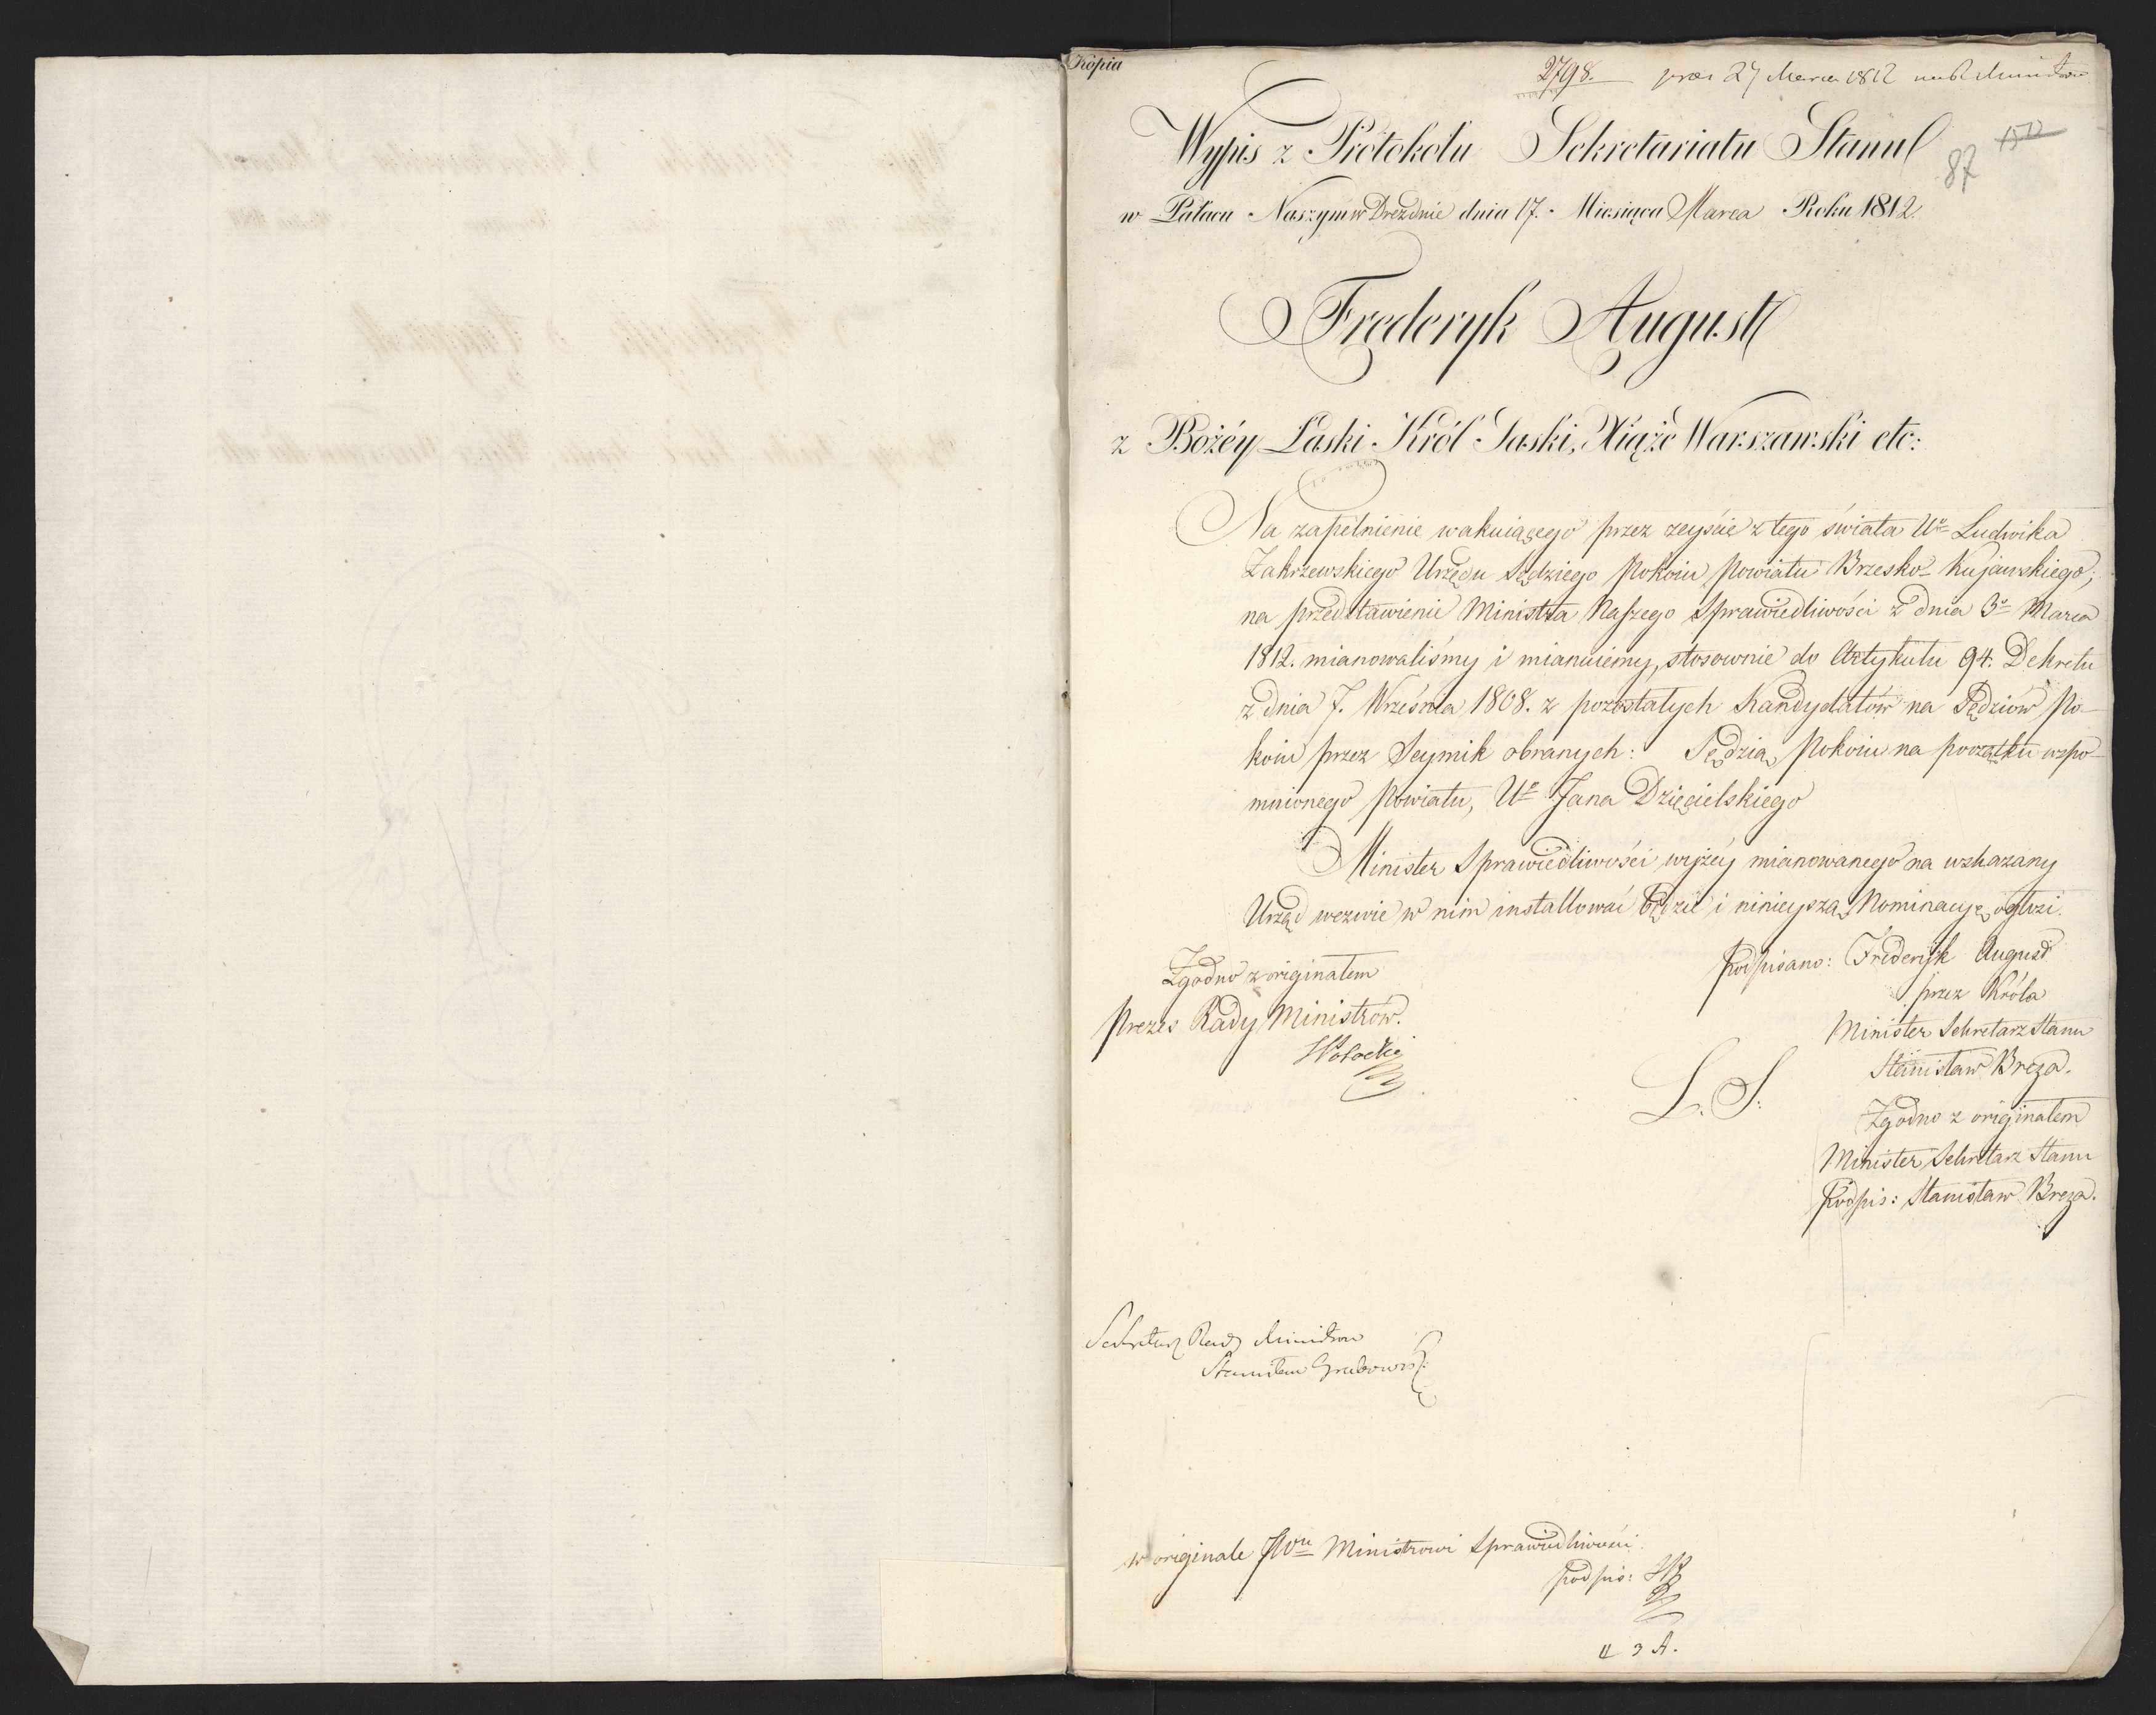 Kopia
2798. prez 27 Marca 1812
1572
87
Wypis z Protokołu Sekretariatu Stanu
w Pałacu Naszym w Dreźdnie dnia 17. Miesiąca Marca Roku 1812
Frederyk August
z Bożéy Łaski Król Saski, Xiąże Warszawski etc:
Na zapełnienie wakuiącego przez zeyście z tego świata Ur Ludwika
Zakrzewskiego Urzędu Sędziego Pokoiu Powiatu Brzesko-Kujawskiego,
na przedstawienie Ministra Naszego Sprawiedliwości z dnia 3o Marca
1812. mianowaliśmy i mianuiemy, stosownie do Artykułu 94. Dekretu
z dnia 7. Września 1808. z pozostałych Kandydatów na Sędziów Po-
koiu przez Seymik obranych: Sędzią Pokoiu na początku wspo-
mnionego Powiatu, Ur Jana Dzięcielskiego
Minister Sprawiedliwości wyżéy mianowanego na wskazany
Urząd wezwie w nim installować będzie i ninieyszą Nominacyę ogłosi.
Zgodno z originałem
Prezes Rady Ministrów.
Podpisano: Frederyk August
przez Króla
Minister Sekretarz Stanu
Stanisław Breza.
L. S:
Zgodno z originałem
Minister Sekretarz Stanu
Podpis: Stanisław Breza.
Sekretarz Rady Ministrów
Stanisław Grabowski
w originale JWu Ministrowi Sprawiedliwości
podpis: